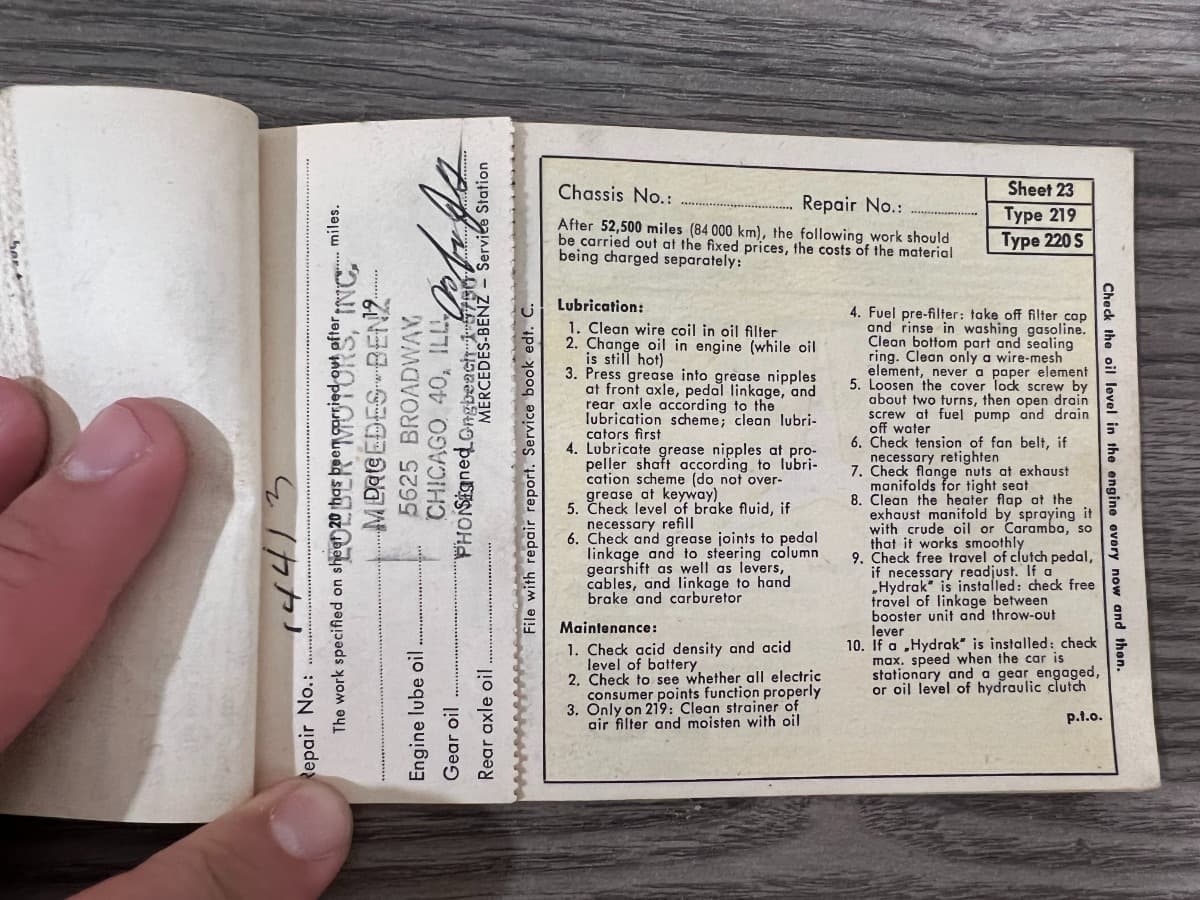 14413
Repair No.:
The work specified on sheet 20 has been carried out after miles.
LOEBER MOTORS, INC.
Date 19
MERCEDES-BENZ
Engine lube oil
5625 BROADWAY
Gear oil
CHICAGO 40, ILL.
Signed
PHONE LOngbeach 1-
Rear axle oil
MERCEDES-BENZ – Service Station
File with repair report. Service book edt. C.
Chassis No.: Repair No.:
Sheet 23
Type 219
Type 220 S
After 52,500 miles (84 000 km), the following work should
be carried out at the fixed prices, the costs of the material
being charged separately:
Lubrication:
1. Clean wire coil in oil filter
2. Change oil in engine (while oil
is still hot)
3. Press grease into grease nipples
at front axle, pedal linkage, and
rear axle according to the
lubrication scheme; clean lubri-
cators first
4. Lubricate grease nipples at pro-
peller shaft according to lubri-
cation scheme (do not over-
grease at keyway)
5. Check level of brake fluid, if
necessary refill
6. Check and grease joints to pedal
linkage and to steering column
gearshift as well as levers,
cables, and linkage to hand
brake and carburetor
Maintenance:
1. Check acid density and acid
level of battery
2. Check to see whether all electric
consumer points function properly
3. Only on 219: Clean strainer of
air filter and moisten with oil
4. Fuel pre-filter: take off filter cap
and rinse in washing gasoline.
Clean bottom part and sealing
ring. Clean only a wire-mesh
element, never a paper element
5. Loosen the cover lock screw by
about two turns, then open drain
screw at fuel pump and drain
off water
6. Check tension of fan belt, if
necessary retighten
7. Check flange nuts at exhaust
manifolds for tight seat
8. Clean the heater flap at the
exhaust manifold by spraying it
with crude oil or Caramba, so
that it works smoothly
9. Check free travel of clutch pedal,
if necessary readjust. If a
„Hydrak" is installed: check free
travel of linkage between
booster unit and throw-out
lever
10. If a „Hydrak" is installed: check
max. speed when the car is
stationary and a gear engaged,
or oil level of hydraulic clutch
p.t.o.
Check the oil level in the engine every now and then.